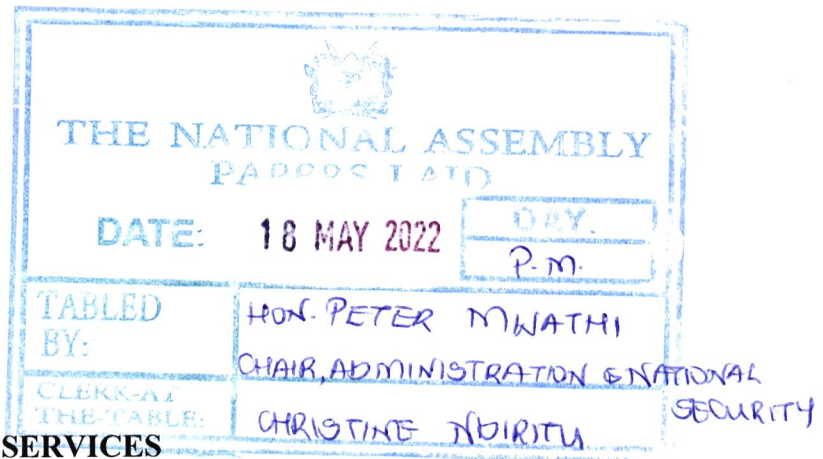 THE NATIONAL ASSEMBLY
PAPERS LAID
DATE: 18 MAY 2022 DAY.
P.M.
TABLED BY: HON. PETER MWATHI
CHAIR, ADMINISTRATION & NATIONAL SECURITY
CLERK-AT THE-TABLE: CHRISTINE NDIRITU
SERVICES